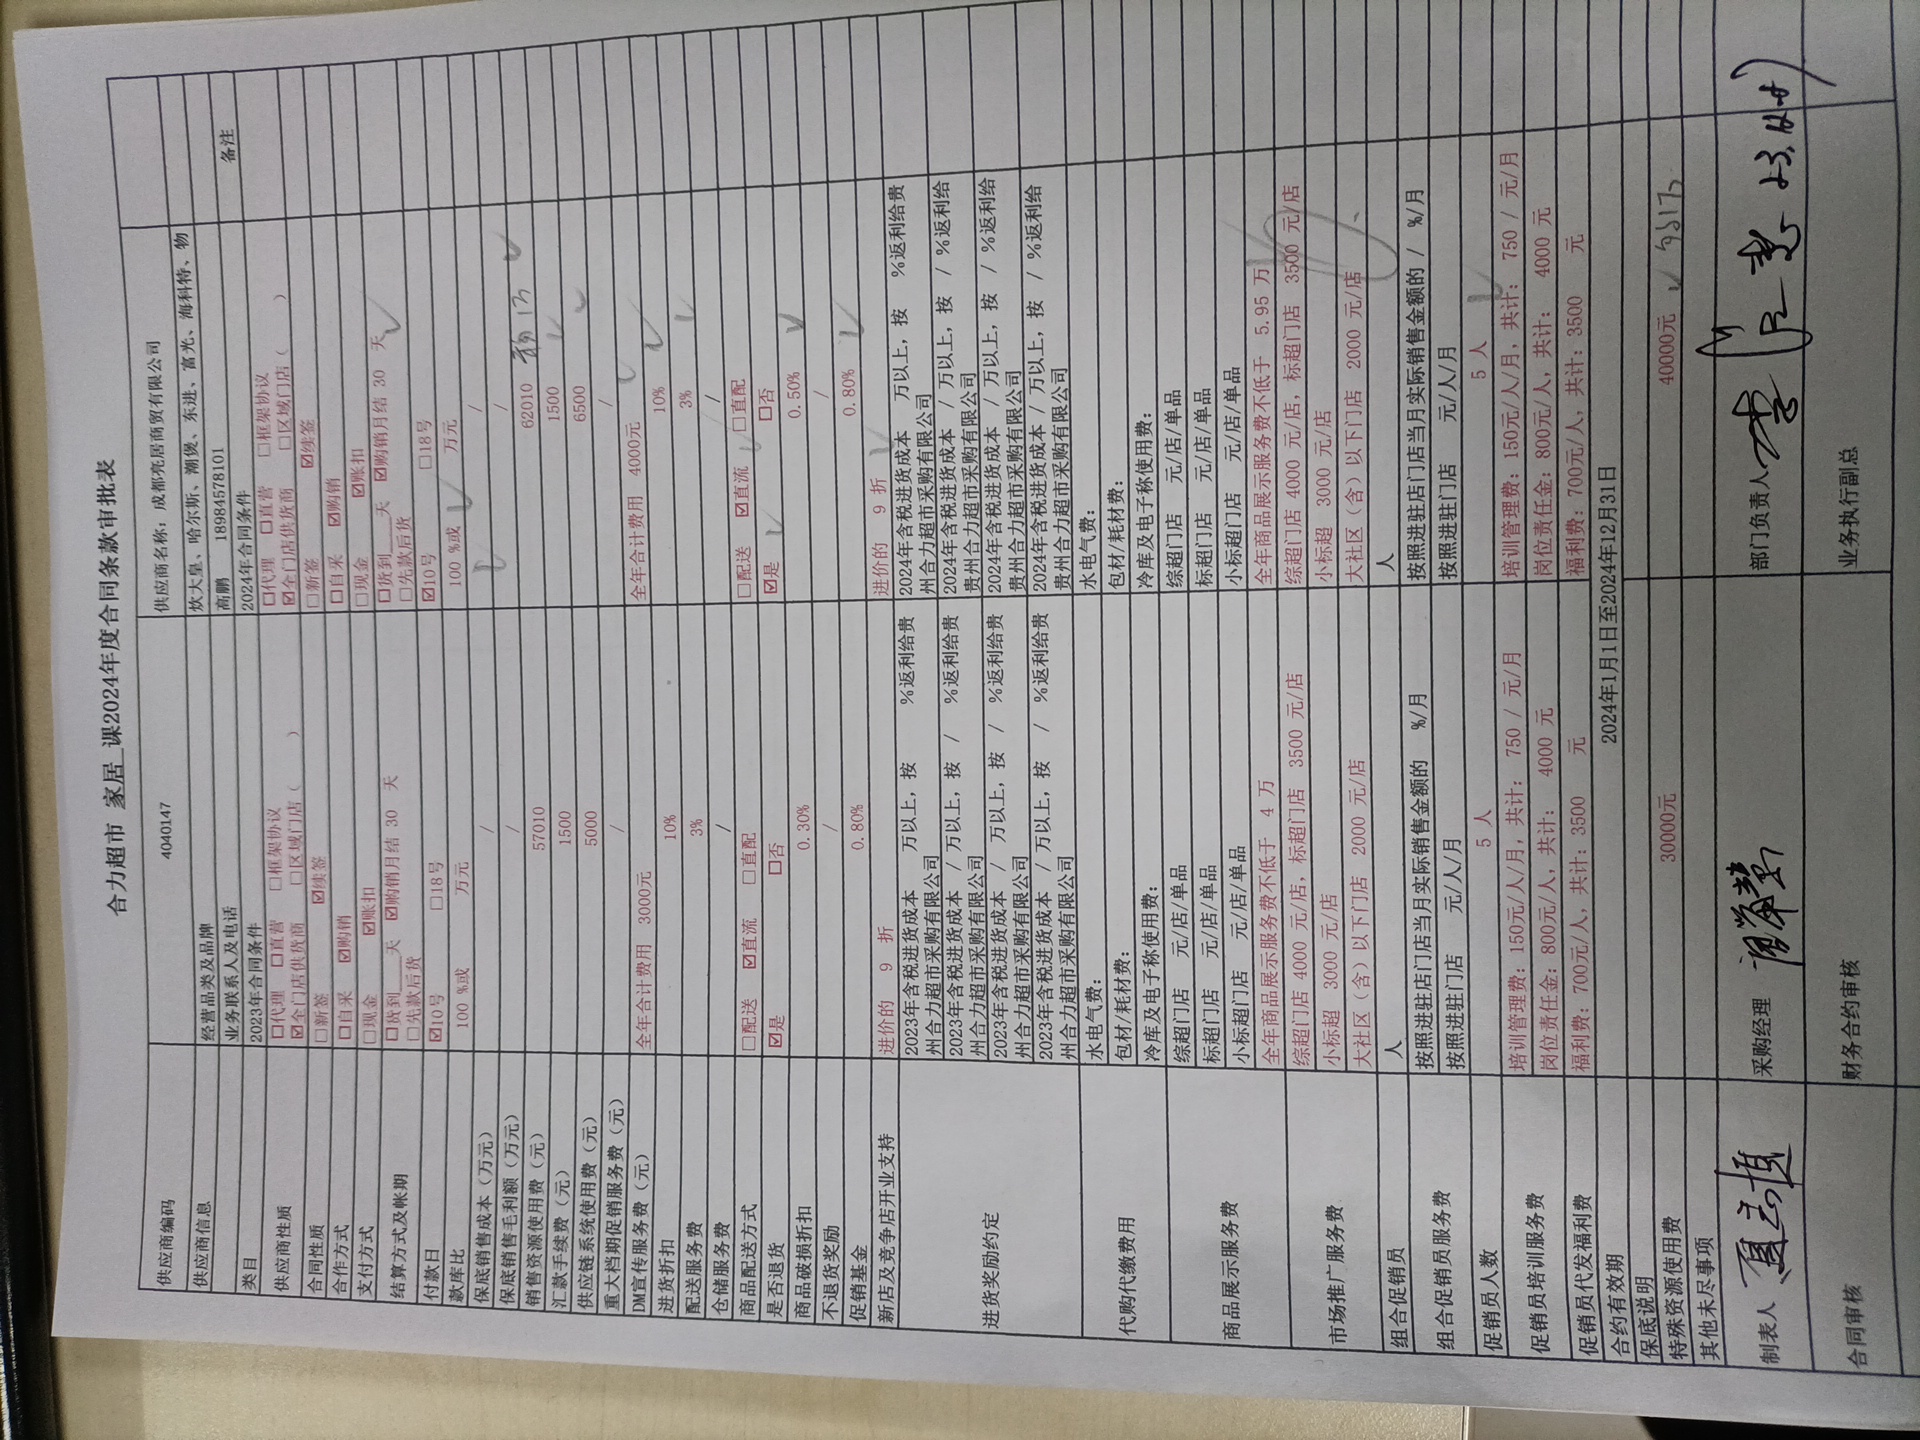 合力超市 家居 课2024年度合同条款审批表
供应商编码 4040147 供应商名称: 成都亮居商贸有限公司
供应商信息 经营品类及品牌 炊大皇、哈尔斯、潮煲、东进、富光、海科特、物
业务联系人及电话 高鹏 18984578101
类目 2023年合同条件 2024年合同条件 备注
供应商性质 □代理 □直营 □框架协议 □代理 □直营 □框架协议
☑全门店供货商 □区域门店( ) ☑全门店供货商 □区域门店( )
合同性质 □新签 ☑续签 □新签 ☑续签
合作方式 □自采 ☑购销 □自采 ☑购销
支付方式 □现金 ☑账扣 □现金 ☑账扣
结算方式及帐期 □货到____天 ☑购销月结 30 天 □货到____天 ☑购销月结 30 天
□先款后货 □先款后货
付款日 ☑10号 □18号 ☑10号 □18号
款库比 100 %或 万元 100 %或 万元
保底销售成本(万元) / /
保底销售毛利额(万元) / /
销售资源使用费(元) 57010 62010
汇款手续费(元) 1500 1500
供应链系统使用费(元) 5000 6500
重大档期促销服务费(元) / /
DM宣传服务费(元) 全年合计费用 3000元 全年合计费用 4000元
进货折扣 10% 10%
配送服务费 3% 3%
仓储服务费 / /
商品配送方式 □配送 ☑直流 □直配 □配送 ☑直流 □直配
是否退货 ☑是 □否 ☑是 □否
商品破损折扣 0.30% 0.50%
不退货奖励 / /
促销基金 0.80% 0.80%
新店及竞争店开业支持 进价的 9 折 进价的 9 折
进货奖励约定 2023年含税进货成本 万以上, 按 %返利给贵州合力超市采购有限公司 2024年含税进货成本 万以上, 按 %返利给贵州合力超市采购有限公司
2023年含税进货成本 / 万以上, 按 / %返利给贵州合力超市采购有限公司 2024年含税进货成本 / 万以上, 按 / %返利给贵州合力超市采购有限公司
2023年含税进货成本 / 万以上, 按 / %返利给贵州合力超市采购有限公司 2024年含税进货成本 / 万以上, 按 / %返利给贵州合力超市采购有限公司
2023年含税进货成本 / 万以上, 按 / %返利给贵州合力超市采购有限公司 2024年含税进货成本 / 万以上, 按 / %返利给贵州合力超市采购有限公司
代购代缴费用 水电气费: 水电气费:
包材/耗材费: 包材/耗材费:
冷库及电子称使用费: 冷库及电子称使用费:
商品展示服务费 综超门店 元/店/单品 综超门店 元/店/单品
标超门店 元/店/单品 标超门店 元/店/单品
小标超门店 元/店/单品 小标超门店 元/店/单品
全年商品展示服务费不低于 4 万 全年商品展示服务费不低于 5.95 万
市场推广服务费 综超门店 4000 元/店, 标超门店 3500 元/店 综超门店 4000 元/店, 标超门店 3500 元/店
小标超 3000 元/店 小标超 3000 元/店
大社区(含)以下门店 2000 元/店 大社区(含)以下门店 2000 元/店
组合促销员 人 人
组合促销员服务费 按照进驻店门店当月实际销售金额的 %/月 按照进驻店门店当月实际销售金额的 / %/月
按照进驻门店 元/人/月 按照进驻门店 元/人/月
促销员人数 5 人 5 人
促销员培训服务费 培训管理费: 150元/人/月, 共计: 750 / 元/月 培训管理费: 150元/人/月, 共计: 750 / 元/月
岗位责任金: 800元/人, 共计: 4000 元 岗位责任金: 800元/人, 共计: 4000 元
促销员代发福利费 福利费: 700元/人, 共计: 3500 元 福利费: 700元/人, 共计: 3500 元
合约有效期 2024年1月1日至2024年12月31日
保底说明
特殊资源使用费 30000元 40000元
其他未尽事项
制表人 采购经理 部门负责人
合同审核 财务合约审核 业务执行副总